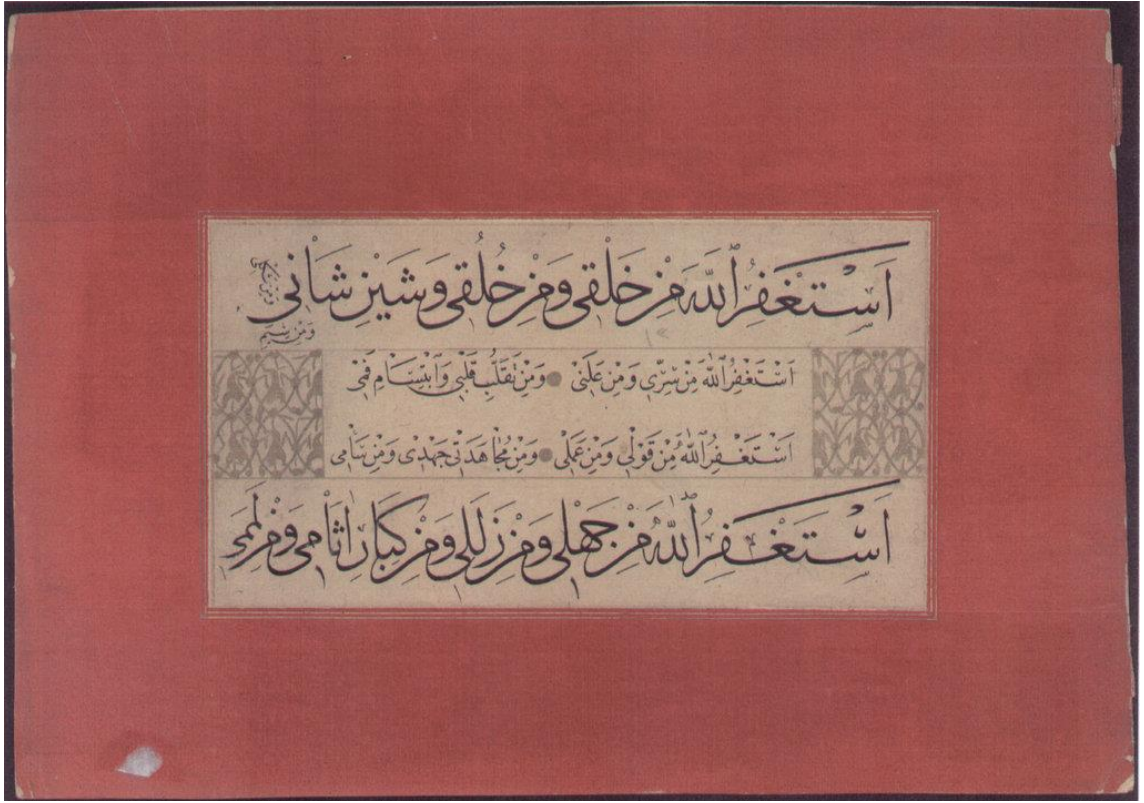 اَسْتَغْفِرُ اللّٰهَ مِنْ خَلْقِي وَمِنْ خُلُقِي وَشَيْنِ شَانِي
وَمِنْ شِيَمِي
اَسْتَغْفِرُ اللّٰهَ مِنْ سِرِّي وَمِنْ عَلَنِي وَمِنْ تَقَلُّبِ قَلْبِي وَابْتِسَامِ فَمِي
اَسْتَغْفِرُ اللّٰهَ مِنْ قَوْلِي وَمِنْ عَمَلِي وَمِنْ مُجَاهَدَتِي جَهْدِي وَمِنْ سَأَمِي
اَسْتَغْفِرُ اللّٰهَ مِنْ جَهْلِي وَمِنْ زَلَلِي وَمِنْ كَبَائِرِ اٰثَامِي وَمِنْ لَمَمِي